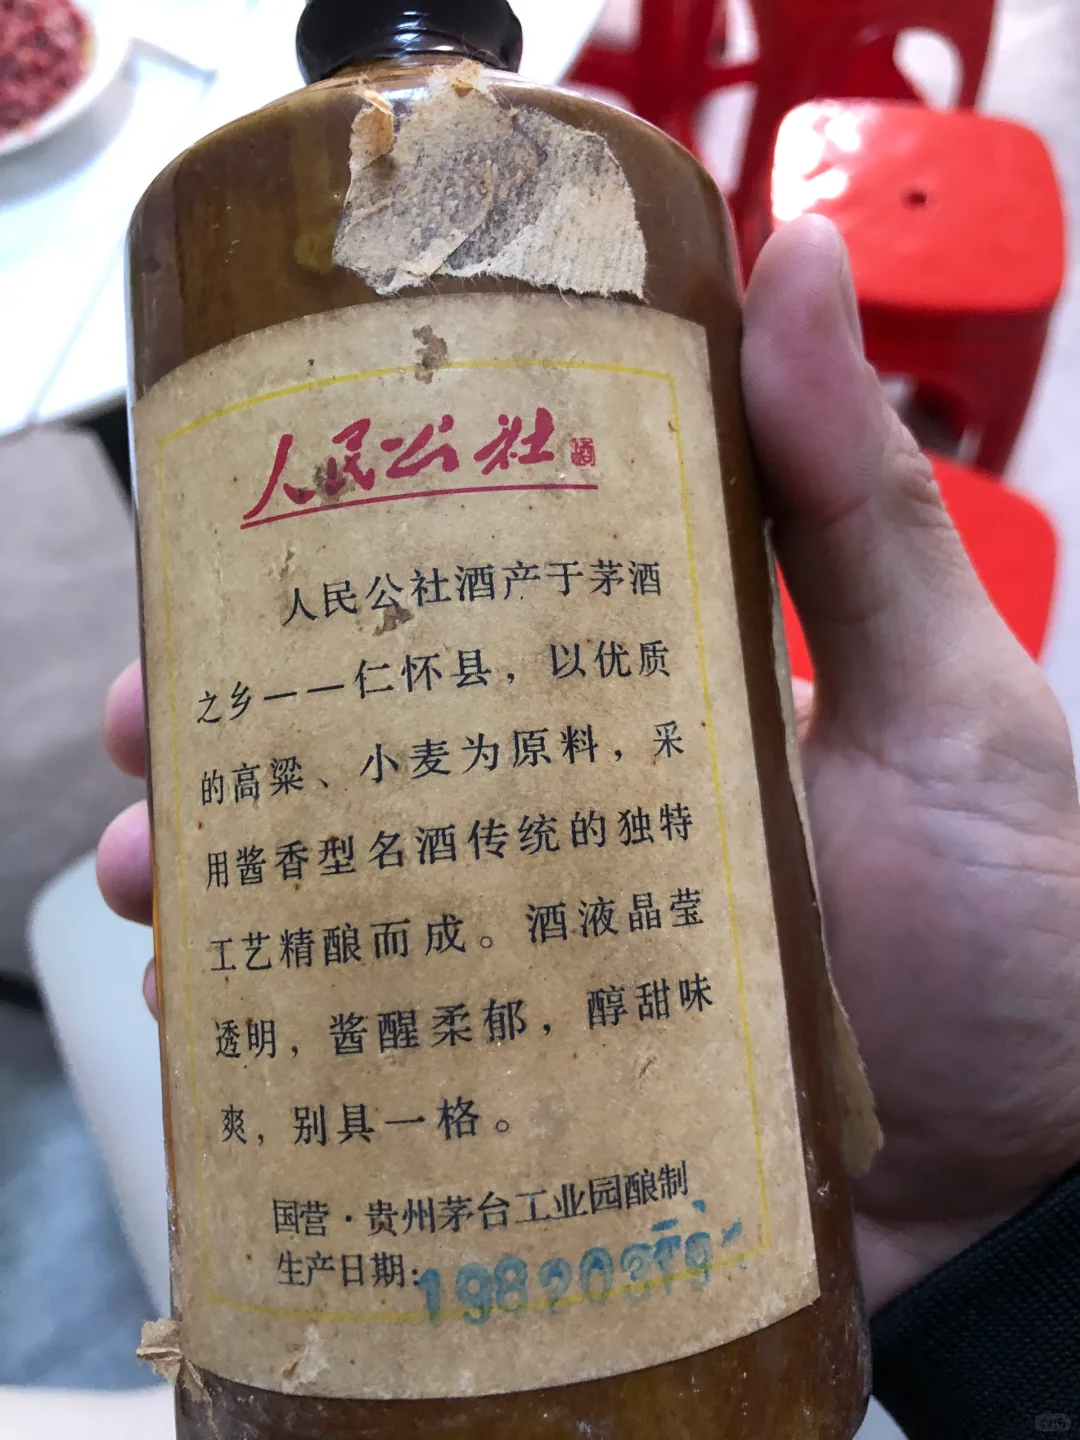 人民公社酒
人民公社酒产于茅酒
之乡——仁怀县，以优质
的高粱、小麦为原料，采
用酱香型名酒传统的独特
工艺精酿而成。酒液晶莹
透明，酱醒柔郁，醇甜味
爽，别具一格。
国营·贵州茅台工业园酿制
生产日期：